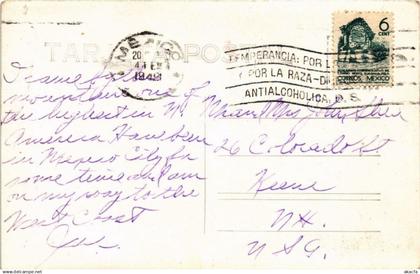 TARJETA POSTAL
MEXICO
20
1948
TEMPERANCIA: POR
POR LA RAZA-
ANTIALCOHOLICA. D. S.
6
CENT
CORREOS MEXICO
I came
mountain one of
the highest in No.
America Have been
in Mexico City for
some time and am
on my way to the
West Coast
Joe.
Mr and Mrs John
26 Colorado St
Keene
N.H.
U.S.A.
akpool.com